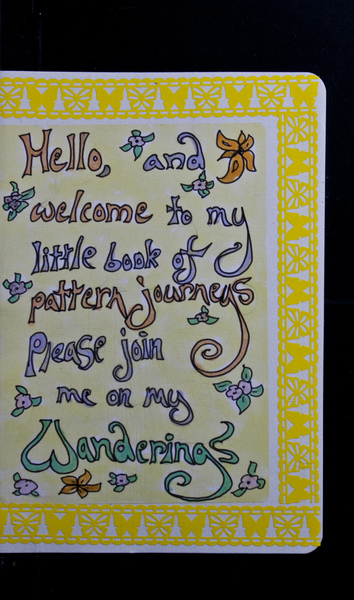 Hello, and
welcome to my
little book of
pattern journeys
Please join
me on my
Wanderings